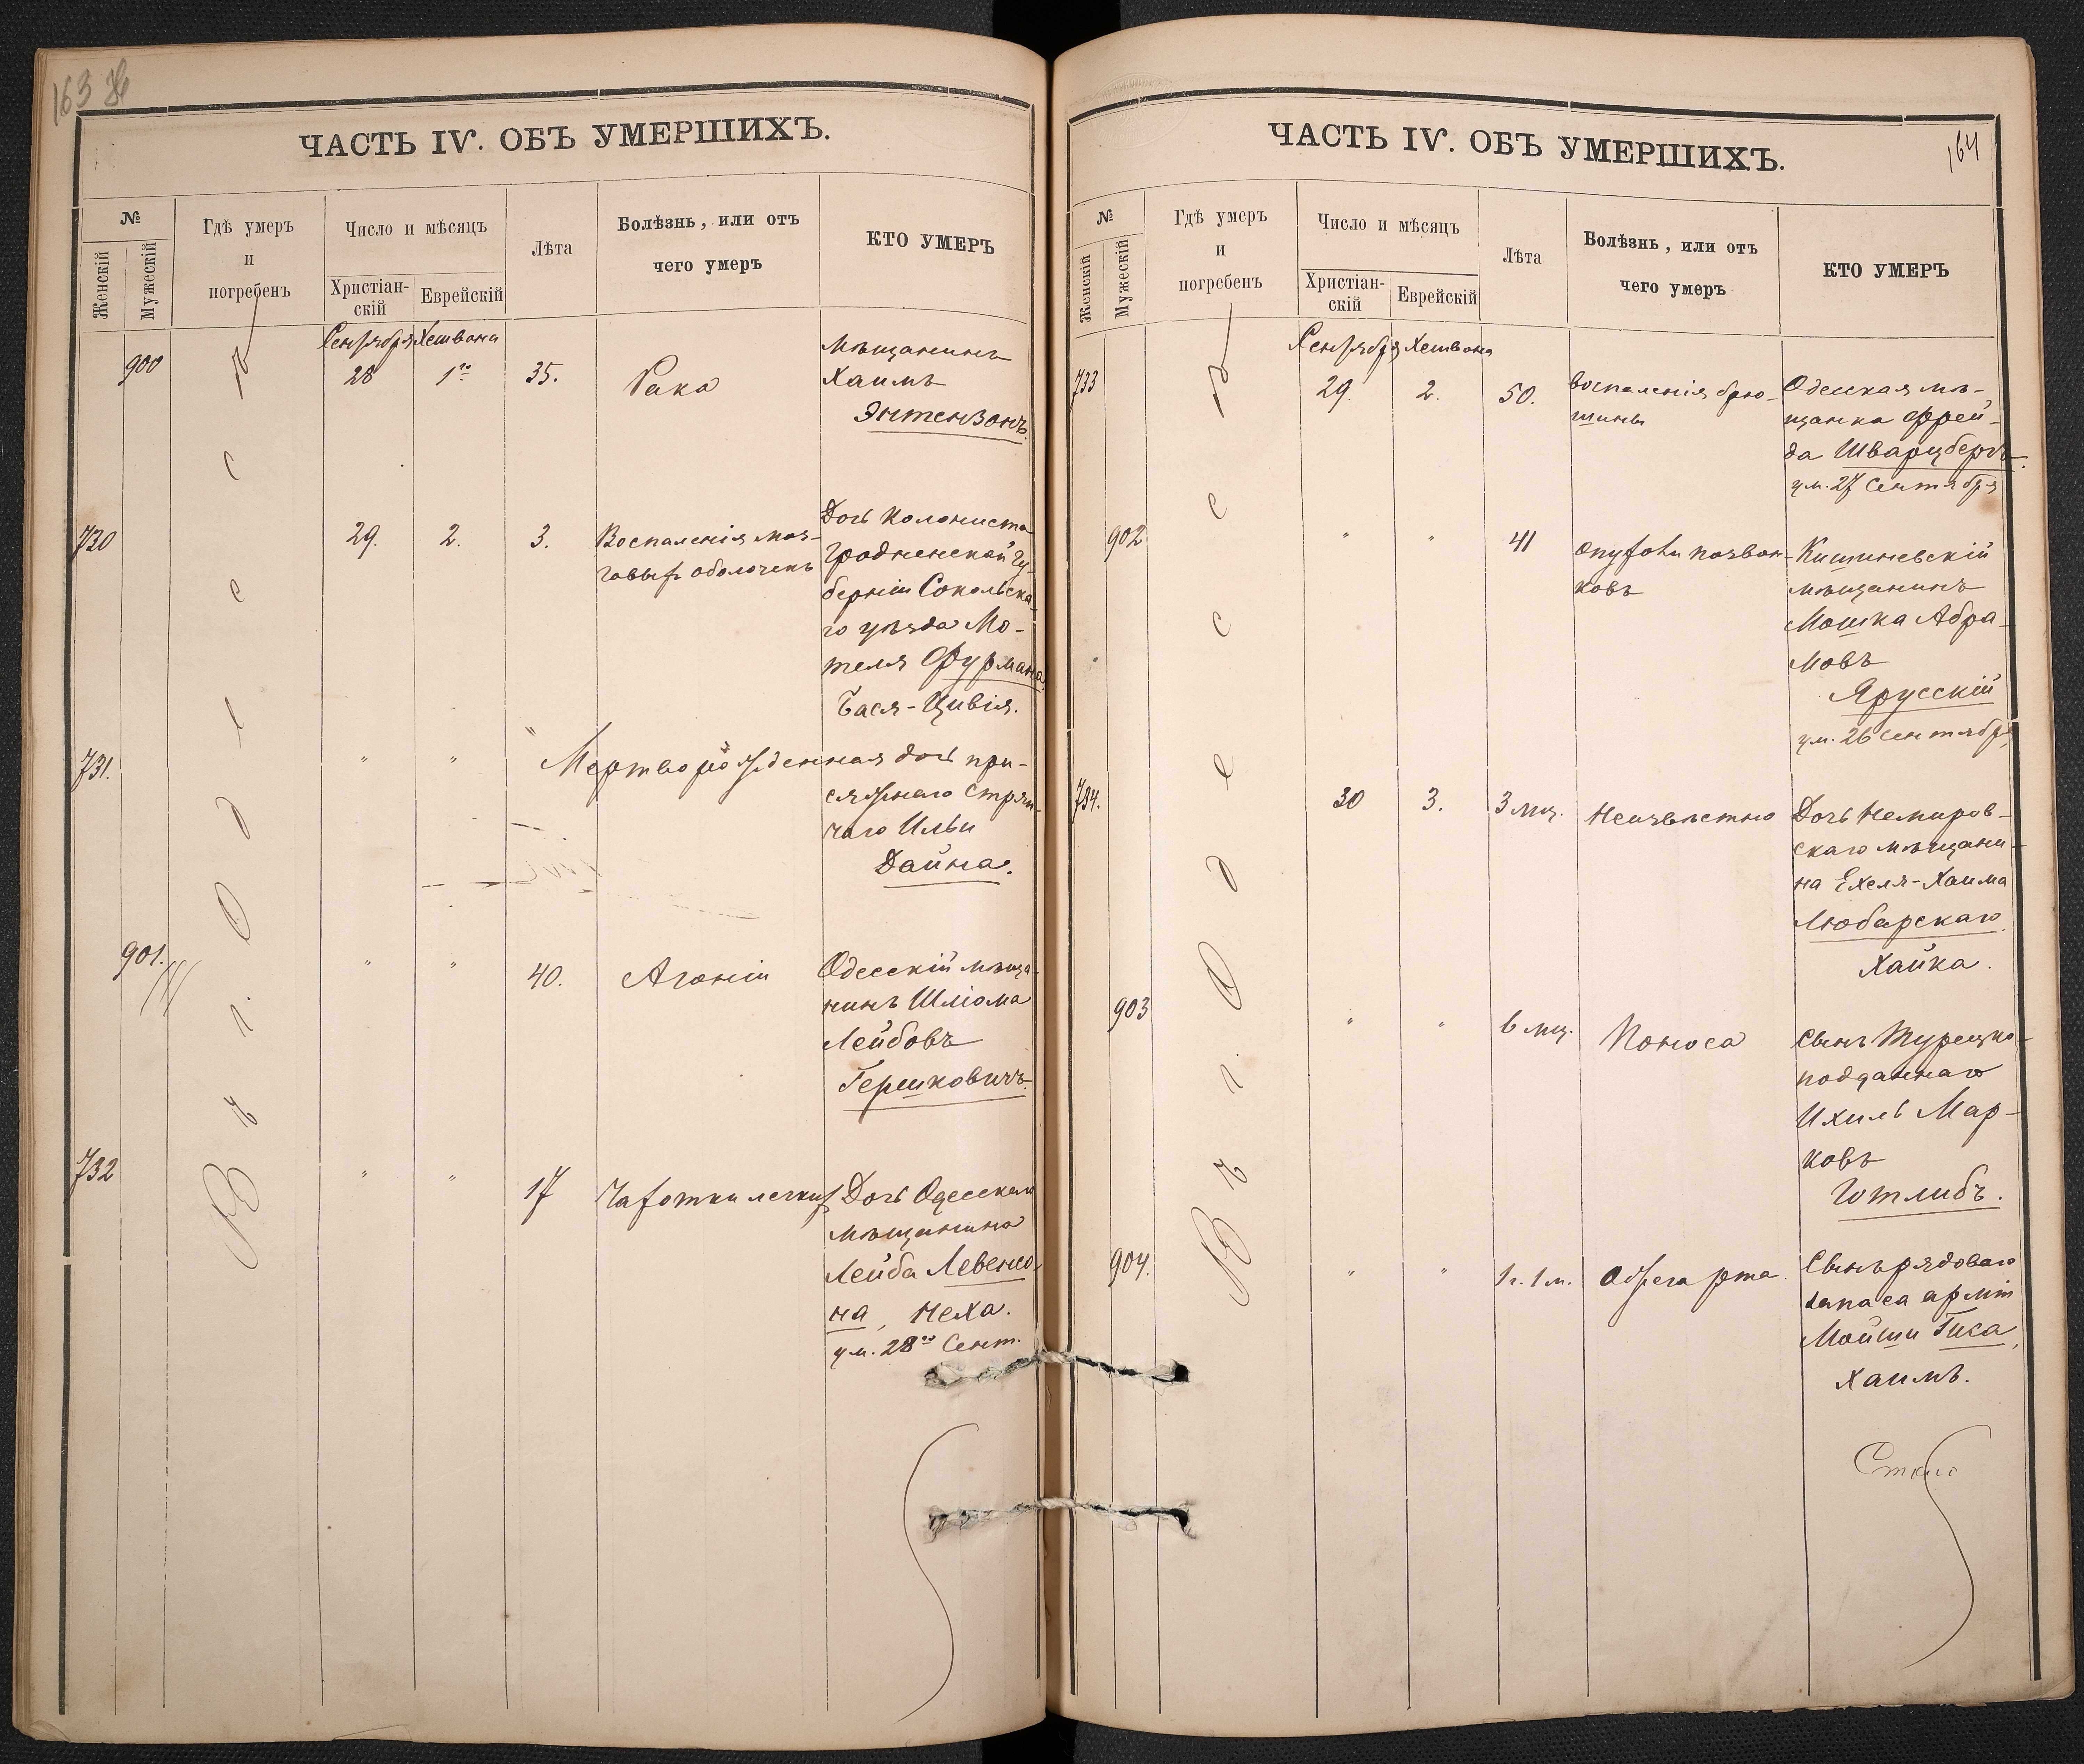 163
ЧАСТЬ IV. ОБЪ УМЕРШИХЪ.
№
Женскій
Мужескій
Гдѣ умеръ
и
погребенъ
Число и мѣсяцъ
Христіан-
скій
Еврейскій
Лѣта
Болѣзнь, или отъ
чего умеръ
КТО УМЕРЪ
Въ г. Одессѣ
Сентября Хешвана
900 28 1го 35. Рака
Мѣщанинъ
Хаимъ
Энтензонъ.
730 29. 2. 3. Воспаленія моз-
говыхъ оболочекъ
Дочь колониста
Гродненской гу-
берніи Сокольска-
го уѣзда Мо-
теля Фурмана
Бася-Цивія.
731. " " " Мертворожденная дочь при-
сяжнаго стряп-
чаго Ильи
Дайна.
901. " " 40. Агоніи
Одесскій мѣща-
нинъ Шліома
Лейбовъ
Гершковичъ.
732 " " 17 Чахотки легкихъ
Дочь Одесскаго
мѣщанина
Лейба Левенсо-
на, Неха.
ум. 28го Сент.
164
ЧАСТЬ IV. ОБЪ УМЕРШИХЪ.
№
Женскій
Мужескій
Гдѣ умеръ
и
погребенъ
Число и мѣсяцъ
Христіан-
скій
Еврейскій
Лѣта
Болѣзнь, или отъ
чего умеръ
КТО УМЕРЪ
Въ г. Одессѣ
Сентября Хешвана
733 29. 2. 50. Воспаленія брю-
шины
Одесская мѣ-
щанка Фрей-
да Шварцбергъ.
ум. 27 Сентября
902 " " 41 Опухоли позвон-
ковъ
Кишиневскій
мѣщанинъ
Мошка Абра-
мовъ
Ярусскій
ум. 26 Сентября
734. 30 3. 3 мѣс. Неизвѣстно
Дочь Немиров-
скаго мѣщани-
на Ехеля-Хаима
Любарскаго,
Хайка.
903 " " 6 мѣс. Поноса
Сынъ Турецко-
подданнаго
Ихиль Мар-
ковъ
Готлибъ.
904. " " 1 г. 1 м. Ожега рта.
Сынъ рядоваго
запаса арміи
Мойши Гиса,
Хаимъ.